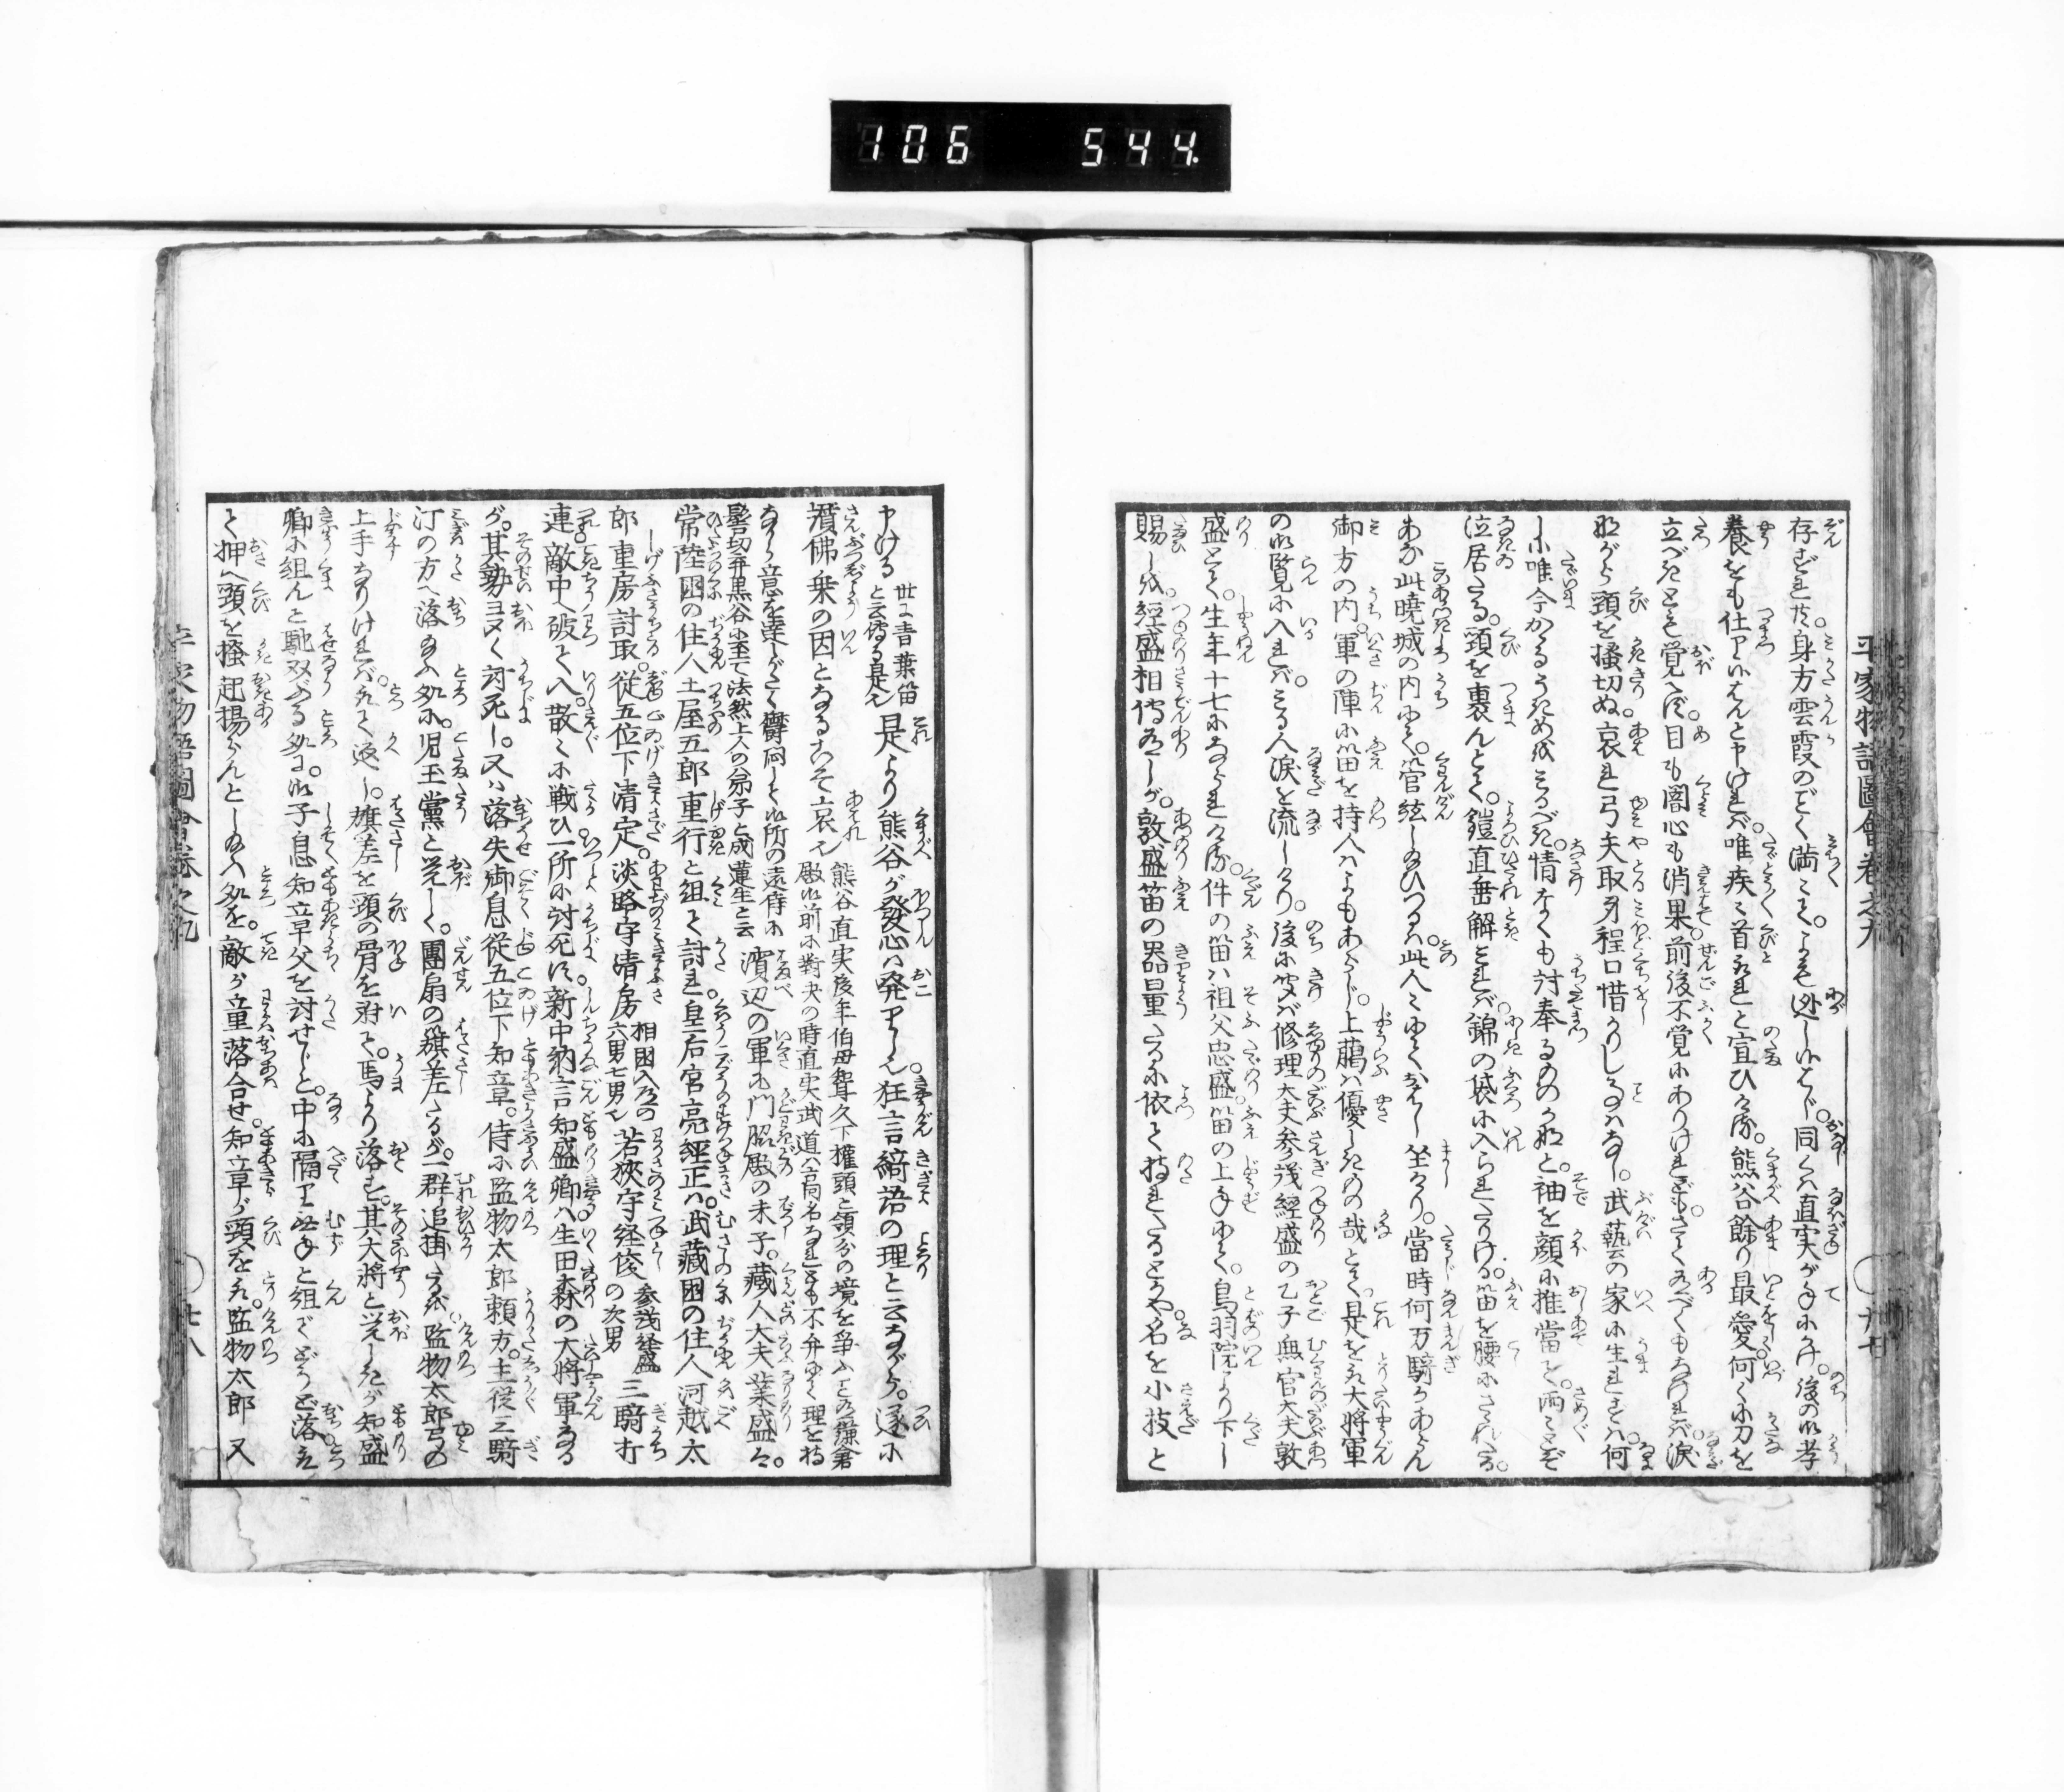 106 544.
平家物語圖會卷之九
廿七
存ずれ共。身方雲霞のごく満〻て。よも迯し候はじ。同くは直実が手にかけ。後の御孝
養をも仕り候はんと申ければ。唯疾〻首取れと宣ひける。熊谷餘り最愛何くに刀を
立べきとも覚へず。目も闇心も消果。前後不覚にありけれども。さて有べくもなければ。涙
ながら頸を搔切ぬ。哀れ弓矢取身程口惜かりし事はなし。武藝の家に生れずは。何
しに唯今かゝるうきめをみるべき。情なくも討奉るものかなと。袖を顔に推當て。雨〻とぞ
泣居たる。頸を裹んとて。鎧直垂解とれば。錦の袋に入られたりける。笛を腰にさゝれたる。
あな此曉城の内にて。管絃し給ひつるは。此人〻にておはし坐けり。當時何万騎かあらん
御方の内。軍の陣に笛を持人はよもあらじ。上﨟は優しきもの哉とて。是を取大将軍
の御覧に入れば。みる人涙を流しけり。後に聞ば修理大夫参議經盛の乙子無官大夫敦
盛とて。生年十七になられける。件の笛は祖父忠盛。笛の上手にて。鳥羽院より下し
賜しを。經盛相傳有しが。敦盛笛の器量たるに依て持れたるとかや。名を小枝と
申ける 世に青葉笛と云傳る是也 是より熊谷が發心は発りし也。狂言綺語の理と云ながら。遂に
讃佛乗の因となるこそ哀也 熊谷直実後年伯母聟久下權頭と領分の境を爭ふとて鎌倉
殿御前に對决の時直実武道は高名なれども不弁にて理を持
ながら意を達しがたく欝悶して御所の遠侍に
髻切弃黒谷に至て法然上人の弟子と成蓮生と云 濱辺の軍に門脇殿の末子。蔵人大夫業盛は。
常陸国の住人土屋五郎重行と組て討れ。皇后宮亮經正は。武藏国の住人河越太
郎重房討取。従五位下清定。淡路守清房 相国入道の六男七男也 若狹守経俊 参議経盛の次男 三騎打
連。敵中へ破て入。散〻に戦ひ一所に討死す。新中納言知盛卿は。生田森の大将軍なる
が。其勢ヨヌく討死し。又は落失。御息従五位下知章。侍に監物太郎頼方。主従三騎
汀の方へ落給ふ処に。児玉黨と覚しく。團扇の籏差たるが。一群追掛たるを。監物太郎弓の
上手なりければ。取て返し。旗差を頸の骨を射て。馬より落す。其大将と覚しきが知盛
卿に組んと馳双ぶる処に。御子息知章父を討せじと。中に隔り。無手と組でどうど落。
て押へ頸を搔んとし給ふ処を。敵が童落合せ。知章が頸を取。監物太郎又
平家物語圖會卷之九
廿八